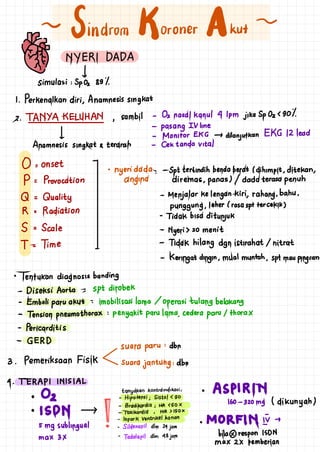 ~ Sindrom Koroner Akut ~
NYERI DADA
Simulasi : SpO2 89%
1. Perkenalkan diri, Anamnesis singkat
2. TANYA KELUHAN, sambil
- O2 nasal kanul 4 lpm jika SpO2 <90%.
- pasang IV line
- Monitor EKG → dilanjutkan EKG 12 lead
- Cek tanda vital
Anamnesis singkat & terarah
O = onset
P = Provocation
Q = Quality
R = Radiation
S = Scale
T = Time
• nyeri dada, angina
- Spt tertindih benda berat (dihimpit, ditekan, diremas, panas) / dada terasa penuh
- Menjalar ke lengan kiri, rahang, bahu, punggung, leher (rasa spt tercekik)
- Tidak bisa ditunjuk
- Nyeri > 20 menit
- Tidak hilang dgn istirahat / nitrat
- Keringat dingin, mual muntah,
• Tentukan diagnosis banding
- Diseksi Aorta = spt dirobek
- Emboli paru akut = imobilisasi lama / operasi tulang belakang
- Tension pneumothorax : penyakit paru lama, cedera paru / thorax
- Pericarditis
- GERD
3. Pemeriksaan Fisik
suara paru : dbn
suara jantung : dbn
4. TERAPI INISIAL
• O2
• ISDN →
5 mg sublingual
max 3x
!
tanyakan kontraindikasi:
- Hipotensi ; Sistol < 90
- Bradikardia ; HR <50 x
- Takikardia , HR >150 x
- Infark ventrikel kanan
- Sildenafil dlm 24 jam
- Tadalafil dlm 48 jam
• ASPIRIN
160 - 320 mg (dikunyah)
• MORFIN IV →
bila ⊖ respon ISDN
max 2x pemberian